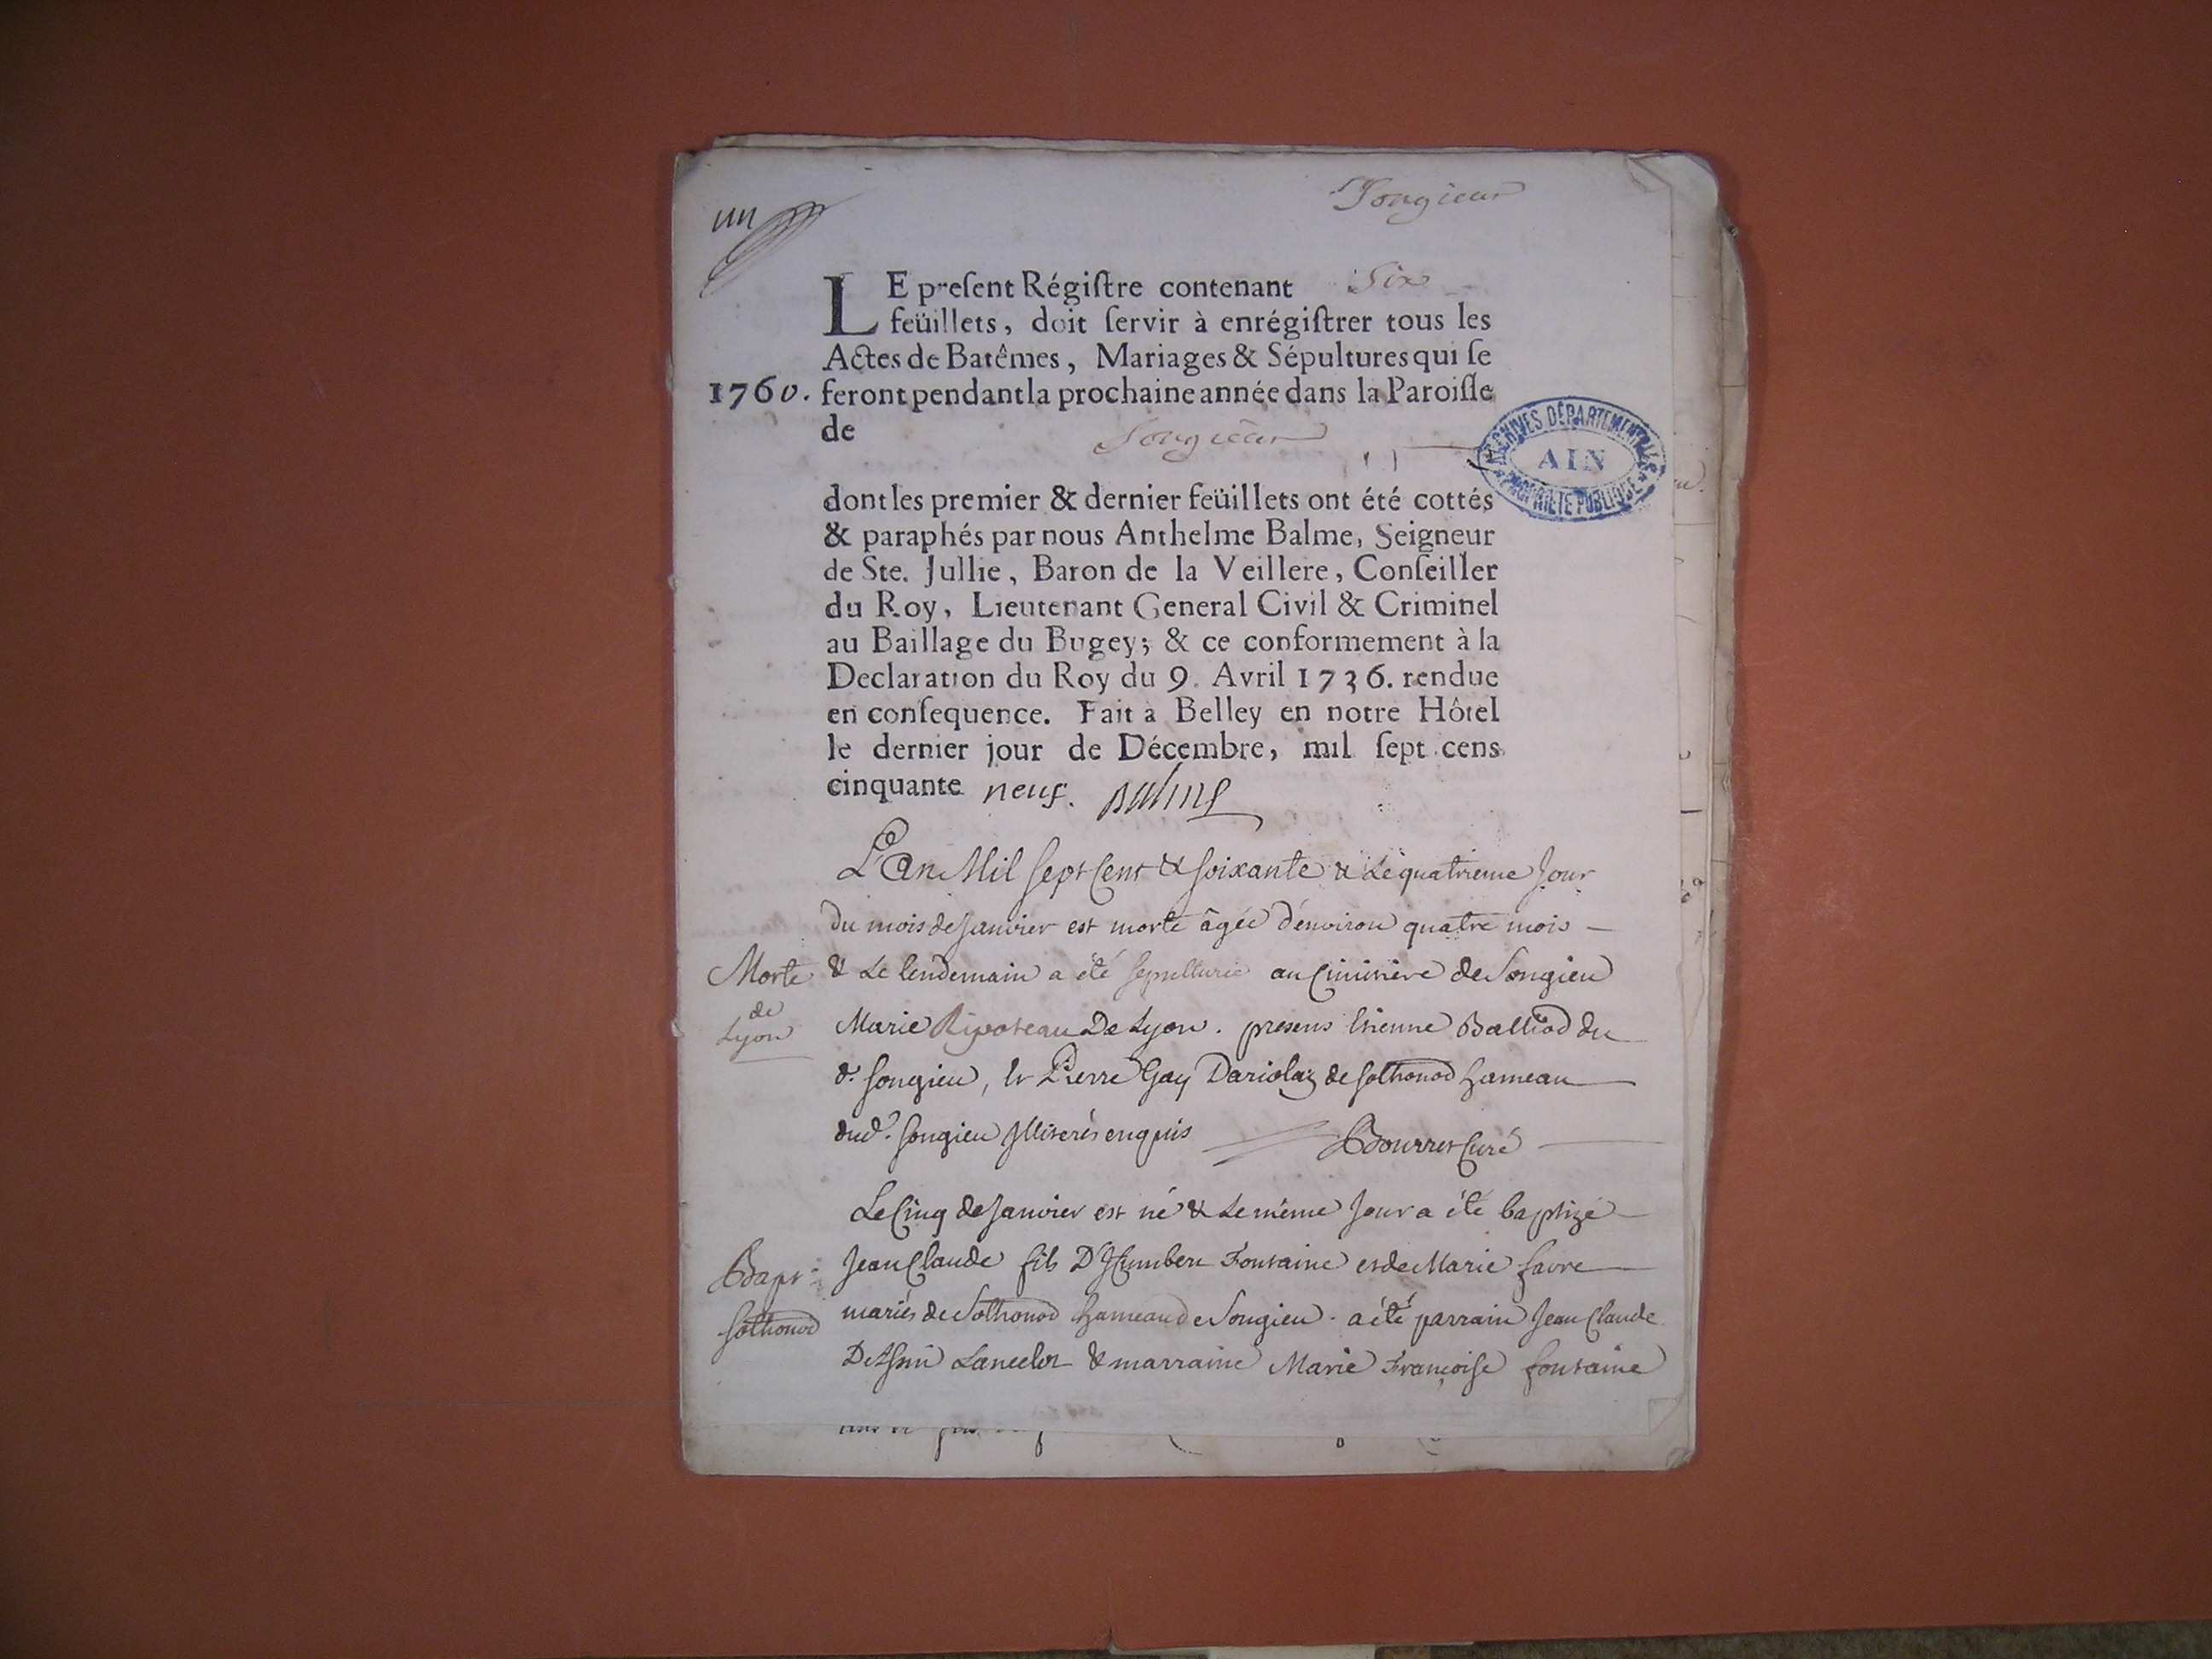 un
Songieux
LE present Régistre contenant Six
feüillets, doit servir à enrégistrer tous les
Actes de Batêmes, Mariages & Sépultures qui se
1760. feront pendant la prochaine année dans la Paroisse
de Songieux
ARCHIVES DÉPARTEMENTALES
AIN
PROPRIÉTÉ PUBLIQUE
dont les premier & dernier feüillets ont été cottés
& paraphés par nous Anthelme Balme, Seigneur
de Ste. Jullie, Baron de la Veillere, Conseiller
du Roy, Lieutenant General Civil & Criminel
au Baillage du Bugey; & ce conformement à la
Declaration du Roy du 9. Avril 1736. rendue
en consequence. Fait à Belley en notre Hôtel
le dernier jour de Décembre, mil sept cens
cinquante neuf. Balme
L'an Mil sept Cent & soixante & Le quatrieme Jour
Du mois de Janvier est morte âgée d'environ quatre mois
Morte de Lyon
& Le lendemain a été sepulturée au Cimitière de Songieu
Marie De Lyon. presens Etienne Balliod du
d. songieu, et Pierre Gay Dariolaz de sothonod hameau
dud. songieu Illiterés enquis Bourret Curé
Le Cinq de Janvier est né & Le même Jour a été baptizé
Bapt: sothonod
Jean Claude fils D'Humbert Fontaine et de Marie favre
mariés de Sothonod hameau de Songieu. a été parrain Jean Claude
Lancelot & marraine Marie Françoise fontaine